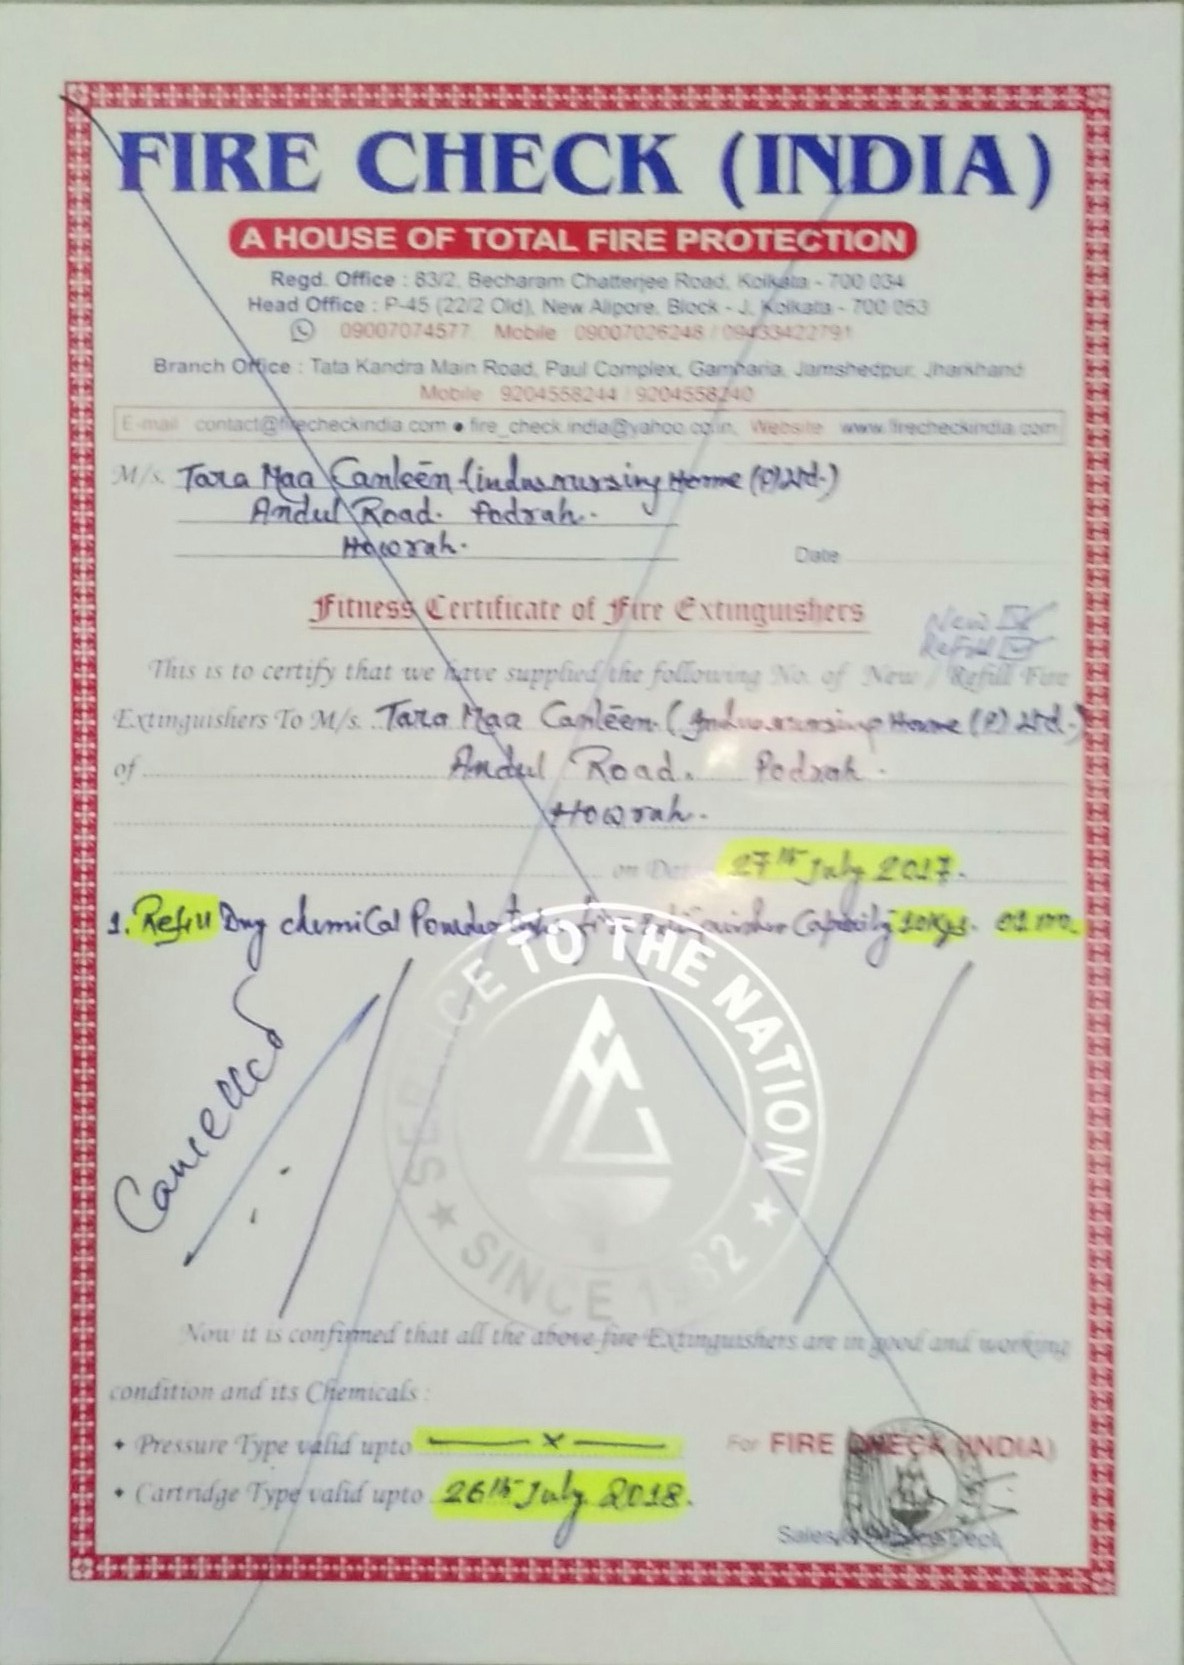 FIRE CHECK (INDIA)
A HOUSE OF TOTAL FIRE PROTECTION
Regd. Office : 83/2, Becharam Chatterjee Road, Kolkata - 700 034
Head Office : P-45 (22/2 Old), New Alipore, Block - J, Kolkata - 700 053
09007074577 Mobile 09007026248 / 09433422791
Branch Office : Tata Kandra Main Road, Paul Complex, Gamharia, Jamshedpur, Jharkhand
Mobile 9204558244 / 9204558240
E-mail contact@firecheckindia.com ● fire_check.india@yahoo.co.in, Website www.firecheckindia.com
M/s. Tara Maa Canteen (indus nursing Home (P) Ltd.)
Andul Road. Podrah.
Howrah.
Date
Fitness Certificate of Fire Extinguishers
New
Refill
This is to certify that we have supplied the following No. of New / Refill Fire
Extinguishers To M/s. Tara Maa Canteen. (Indus nursing Home (P) Ltd.)
of Andul Road. Podrah.
Howrah.
on Date 27th July 2017.
1. Refill Dry chemical Powder fire Extinguisher Capacity 10Kgs. 01 no.
SERVICE TO THE NATION
SINCE 1982
Cancelled
Now it is confirmed that all the above fire Extinguishers are in good and working
condition and its Chemicals :
• Pressure Type valid upto — x —
For FIRE CHECK (INDIA)
• Cartridge Type valid upto 26th July 2018.
Sales & Dept.